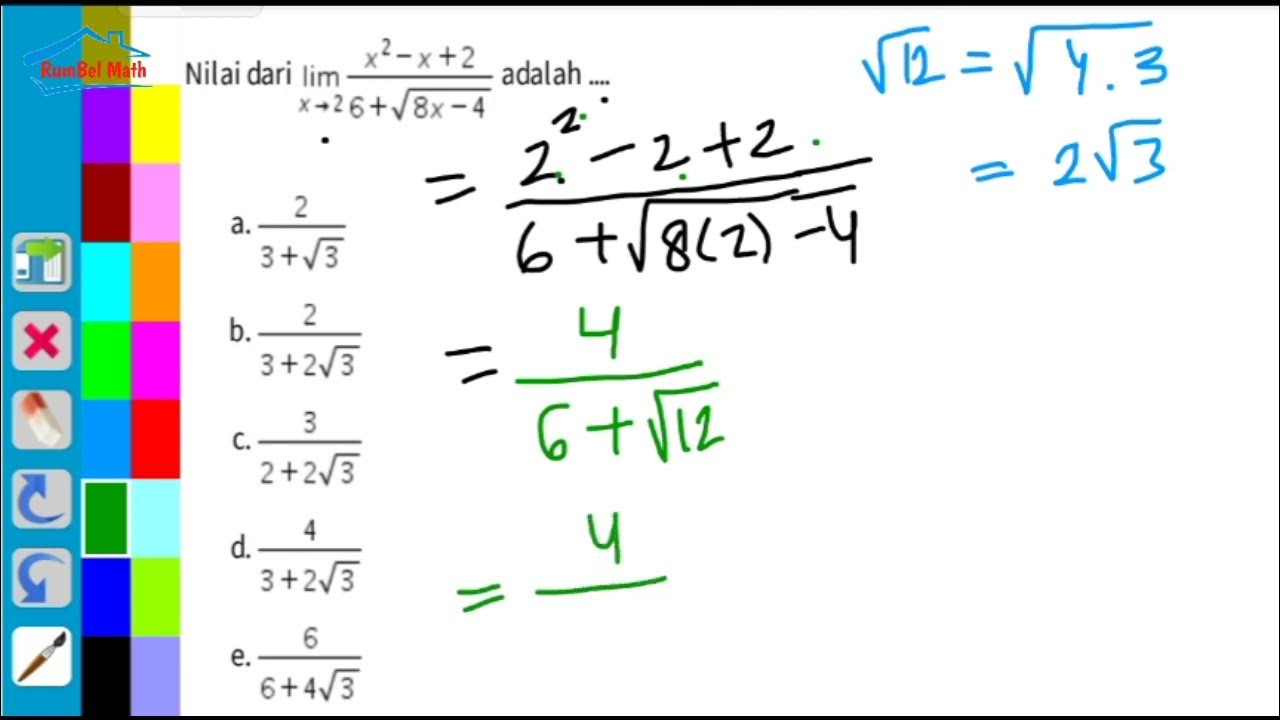 RumBel Math
Nilai dari lim x→2 (x² − x + 2)/(6 + √(8x − 4)) adalah ....
a. 2/(3 + √3)
b. 2/(3 + 2√3)
c. 3/(2 + 2√3)
d. 4/(3 + 2√3)
e. 6/(6 + 4√3)
= (2² − 2 + 2)/(6 + √(8(2) − 4))
= 4/(6 + √12)
= 4
√12 = √(4 . 3)
= 2√3